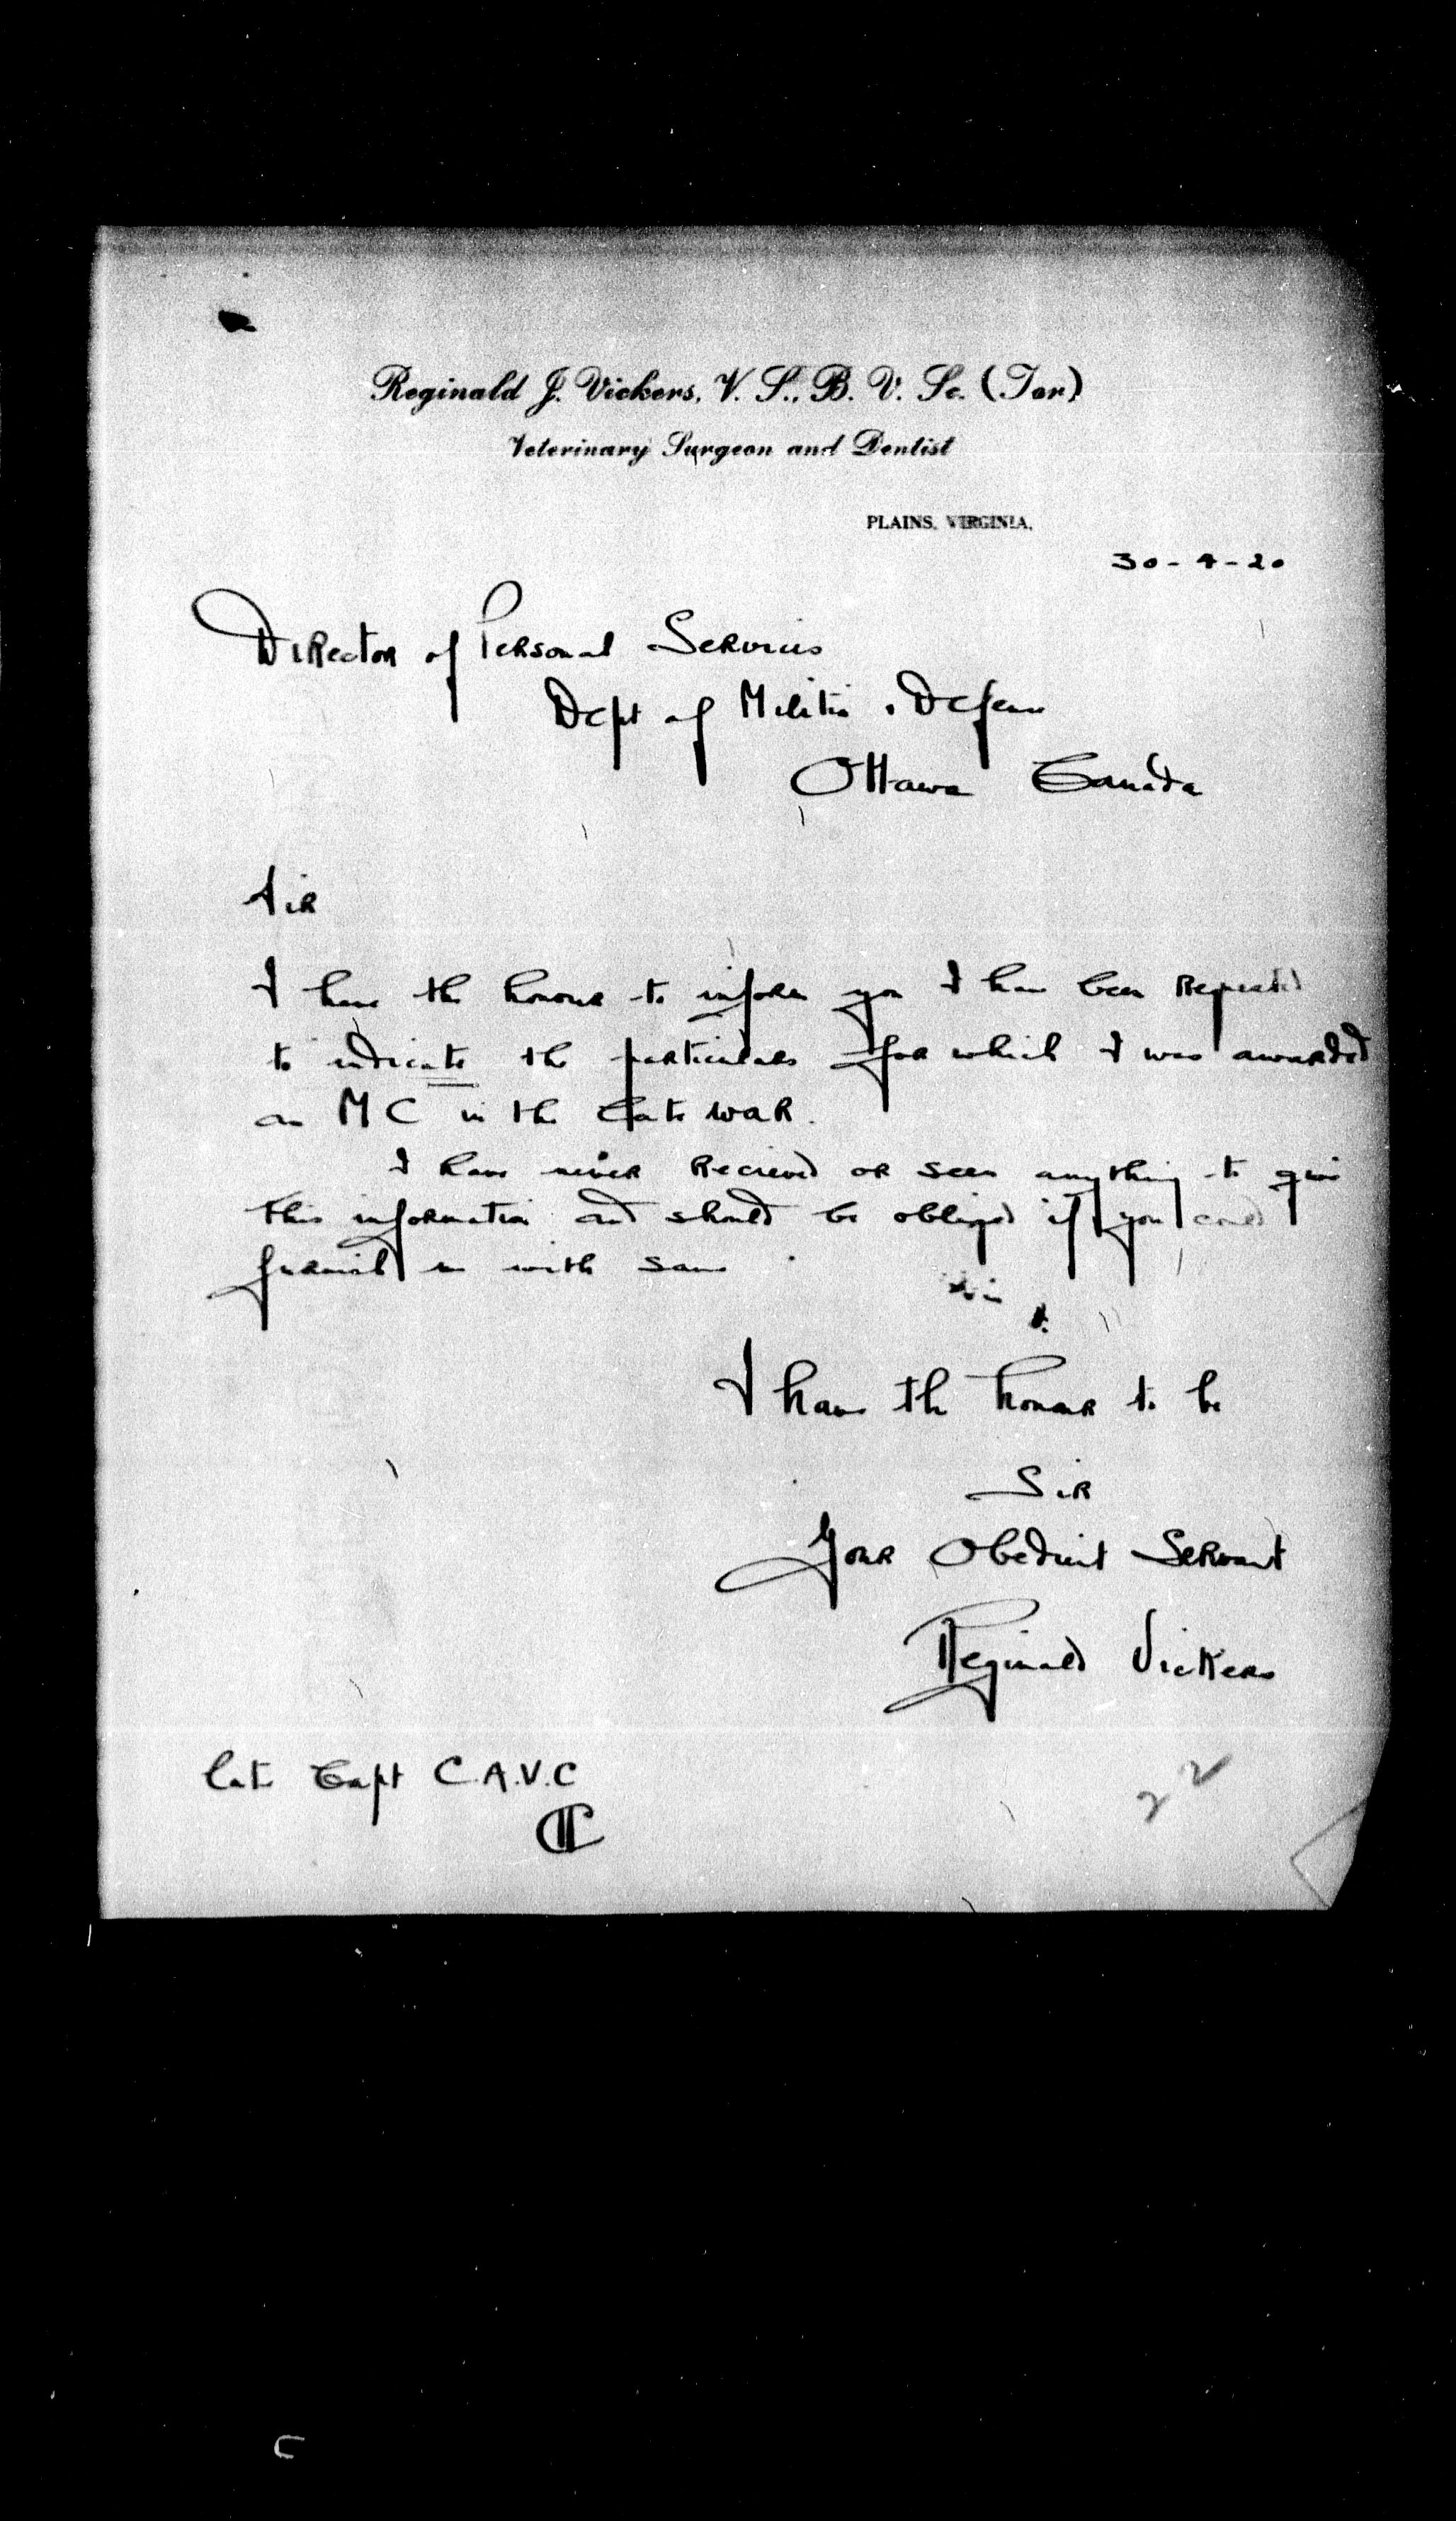 Reginald J. Vickers, V. S., B. V. Sc. (Tor)
Veterinary Surgeon and Dentist
PLAINS, VIRGINIA,
30-4-20
Director of Personal Services
Dept of Militia & Defence
Ottawa Canada
Sir
I have the honour to inform you I have been
to indicate the particulars for which I was awarded
an M C in the late war.
I have never Recieved or seen anything to give
this information and should be obliged if you could
furnish me with same
I have the honour to be
Sir
Your Obedient Servant
Reginald Vickers
late Capt C.A.V.C